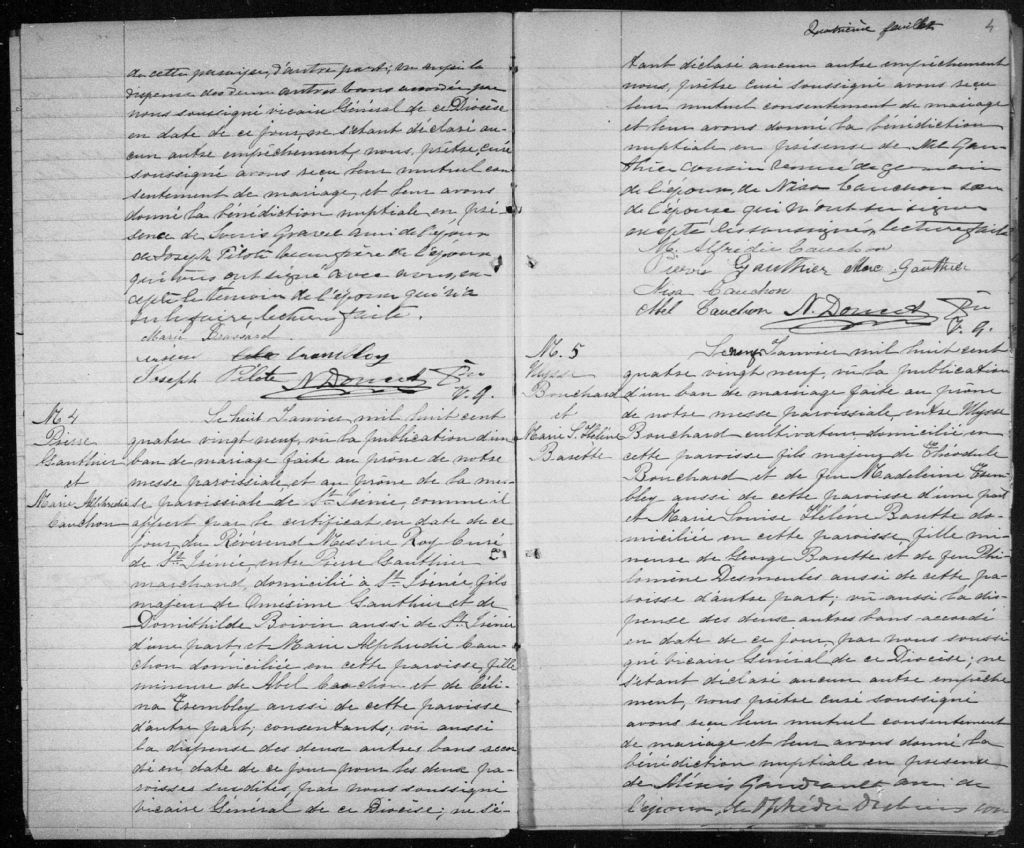 de cette paroisse, d'autre part; vu aussi la
dispense des deux autres bans accordée par
nous soussigné vicaire Général de ce Diocèse
en date de ce jour, ne s'étant déclaré au-
cun autre empêchement, nous, prêtre curé
soussigné avons reçu leur mutuel con
sentement de mariage, et leur avons
donné la bénédiction nuptiale en pré-
sence de Louis Gravel ami de l'époux
de Joseph Pilote beau père de l'épouse
qui tous ont signé avec nous, ex-
cepté le témoin de l'époux qui n'a
su le faire, lecture faite.
Marie Brassard
Tremblay
Joseph Pilote N. Doucet Ptre
V. G.
M 4
Pierre
Gauthier
et
Marie Alphrédie
Cauchon
Le huit Janvier, mil huit cent
quatre vingt neuf, vu la publication d'un
ban de mariage faite au prône de notre
messe paroissiale et au prône de la mes-
se paroissiale de St Irénée, comme il
appert par le certificat en date de ce
jour du Révérend Messire Roy Curé
de St Irénée, entre Pierre Gauthier
marchand, domicilié à St Irénée fils
majeur de Onésime Gauthier et de
Domithilde Boivin aussi de St Irénée
d'une part, et Marie Alphrédie Cau-
chon domiciliée en cette paroisse, fille
mineure de Abel Cauchon et de Céli-
na Tremblay aussi de cette paroisse
d'autre part; consentants; vu aussi
la dispense des deux autres bans accor
dé en date de ce jour pour les deux pa-
roisses susdites, par nous soussigné
vicaire Général de ce Diocèse; ne s'é-
Quatrième feuillet
4
tant déclaré aucun autre empêchement
nous, prêtre curé soussigné avons reçu
leur mutuel consentement de mariage
et leur avons donné la bénédiction
nuptiale en présense de Gau-
thier cousin germain
de l'époux, de Nisa Cauchon sœur
de l'épouse qui n'ont su signer
excepté les soussignés, lecture faite
M. Alfrédie Cauchon
Pierre Gauthier Marc Gauthier
Nisa Cauchon
Abel Cauchon N. Doucet Ptre
V. G.
M. 5
Ulysse
Bouchard
et
Marie L. Héline
Barette
Le neuf Janvier mil huit cent
quatre vingt neuf, vu la publication
d'un ban de mariage faite au prône
de notre messe paroissiale, entre Ulysse
Bouchard cultivateur domicilié en
cette paroisse fils majeur de Théodule
Bouchard et de feu Madeleine Trem
bley aussi de cette paroisse d'une part
et Marie Louise Héline Barette do-
miciliée en cette paroisse, fille mi-
neure de George Barette et de feu Phi-
lomène Desmeules aussi de cette pa-
roisse d'autre part; vu aussi la dis-
pense des deux autres bans accordé
en date de ce jour, par nous soussi
gné vicaire Général de ce Diocèse; ne
s'étant déclaré aucun autre empêche
ment, nous prêtre curé soussigné
avons reçu leur mutuel consentement
de mariage et leur avons donné la
bénédiction nuptiale en présence
de Méxis Gaudreault ami de
l'époux, de Alphédie